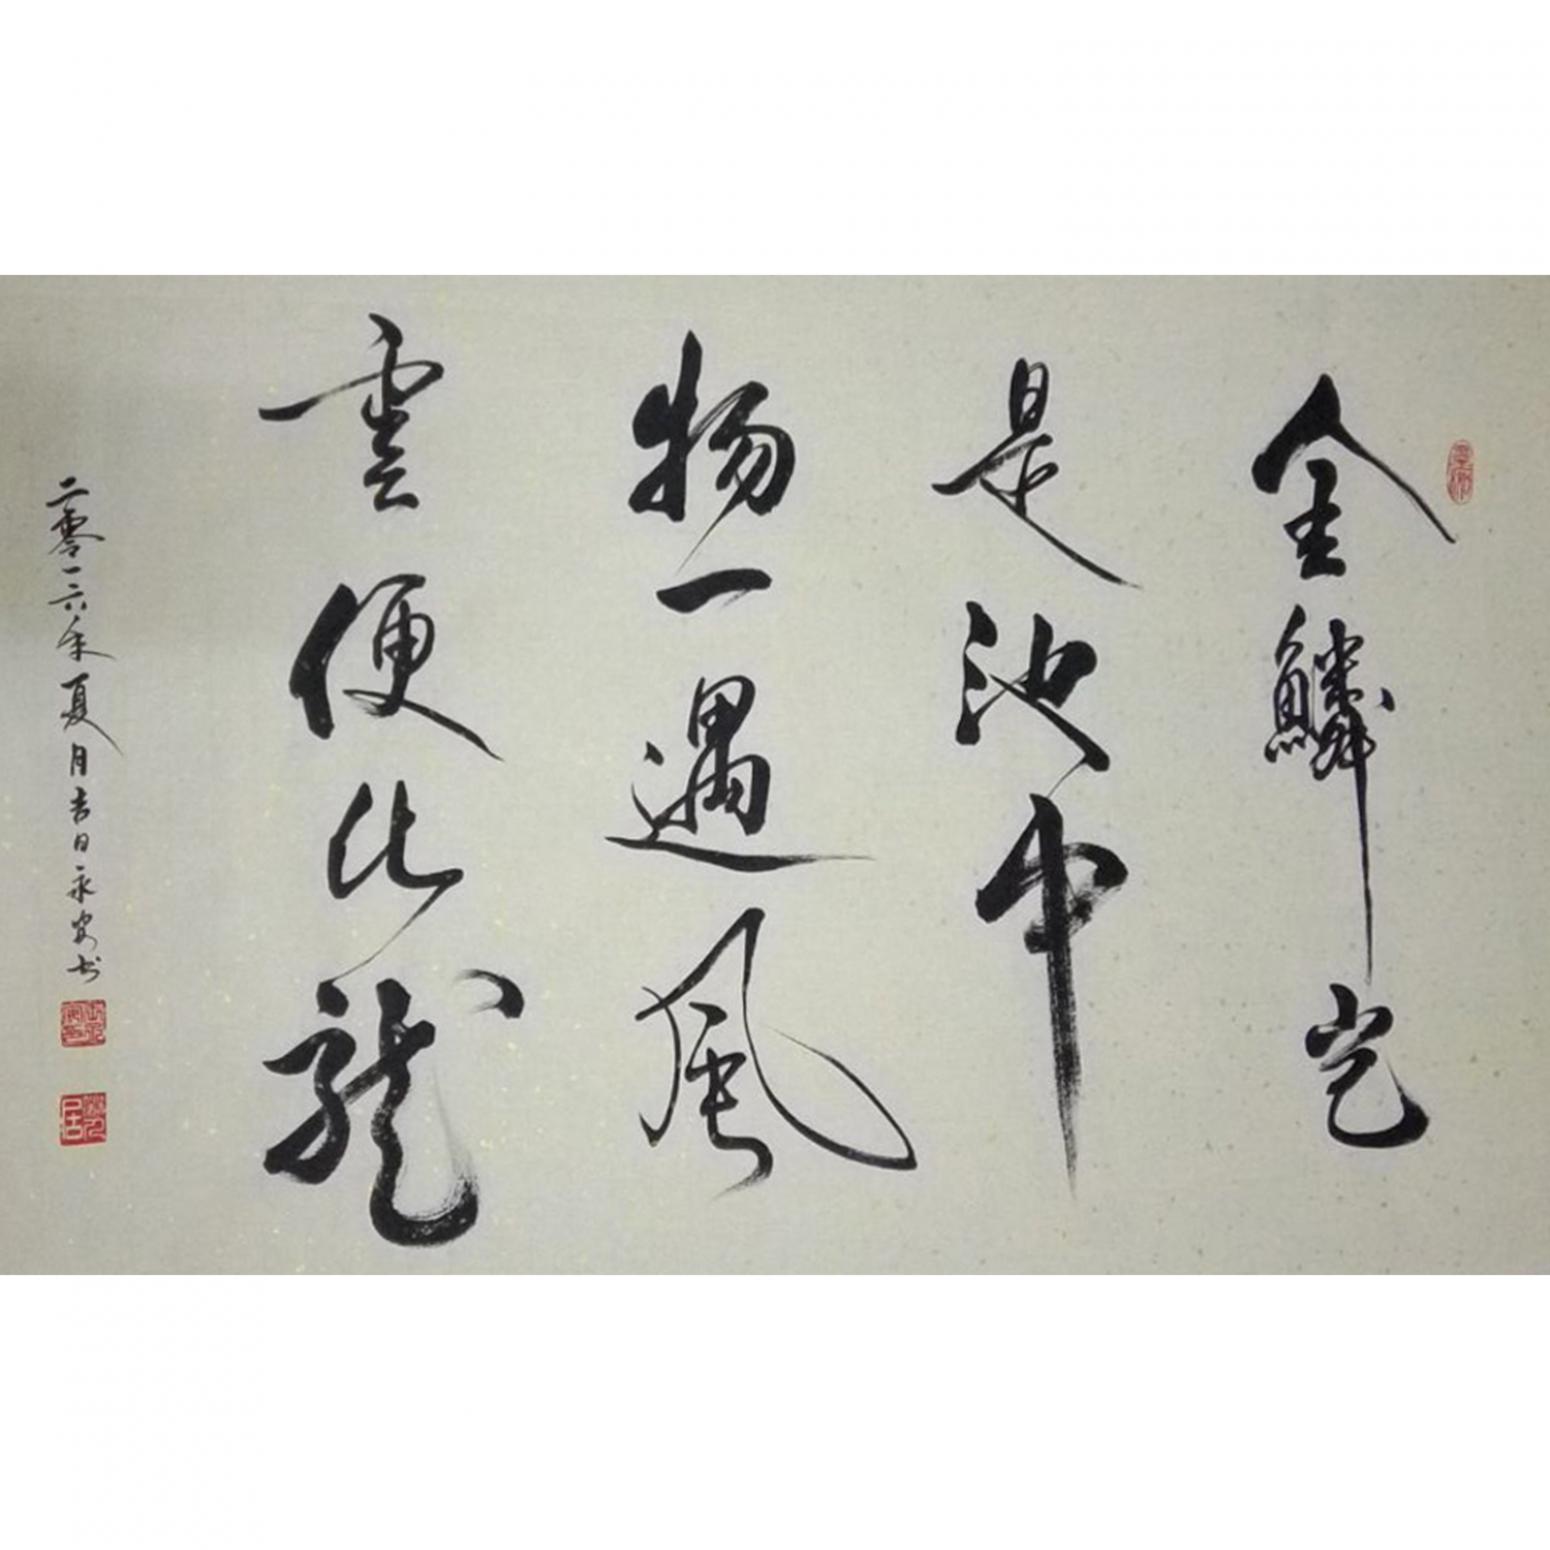 金鱗岂
是池中
物一遇風
雲便化龍
二零一六年夏月吉日永安书